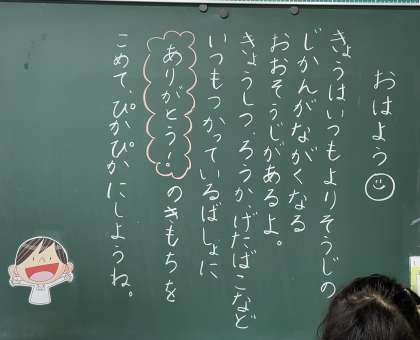 おはよう
きょうはいつもよりそうじの
じかんがながくなる
おおそうじがあるよ。
きょうしつ、ろうか、げたばこなど
いつもつかっているばしょに
ありがとう!。のきもちを
こめて、ぴかぴかにしようね。